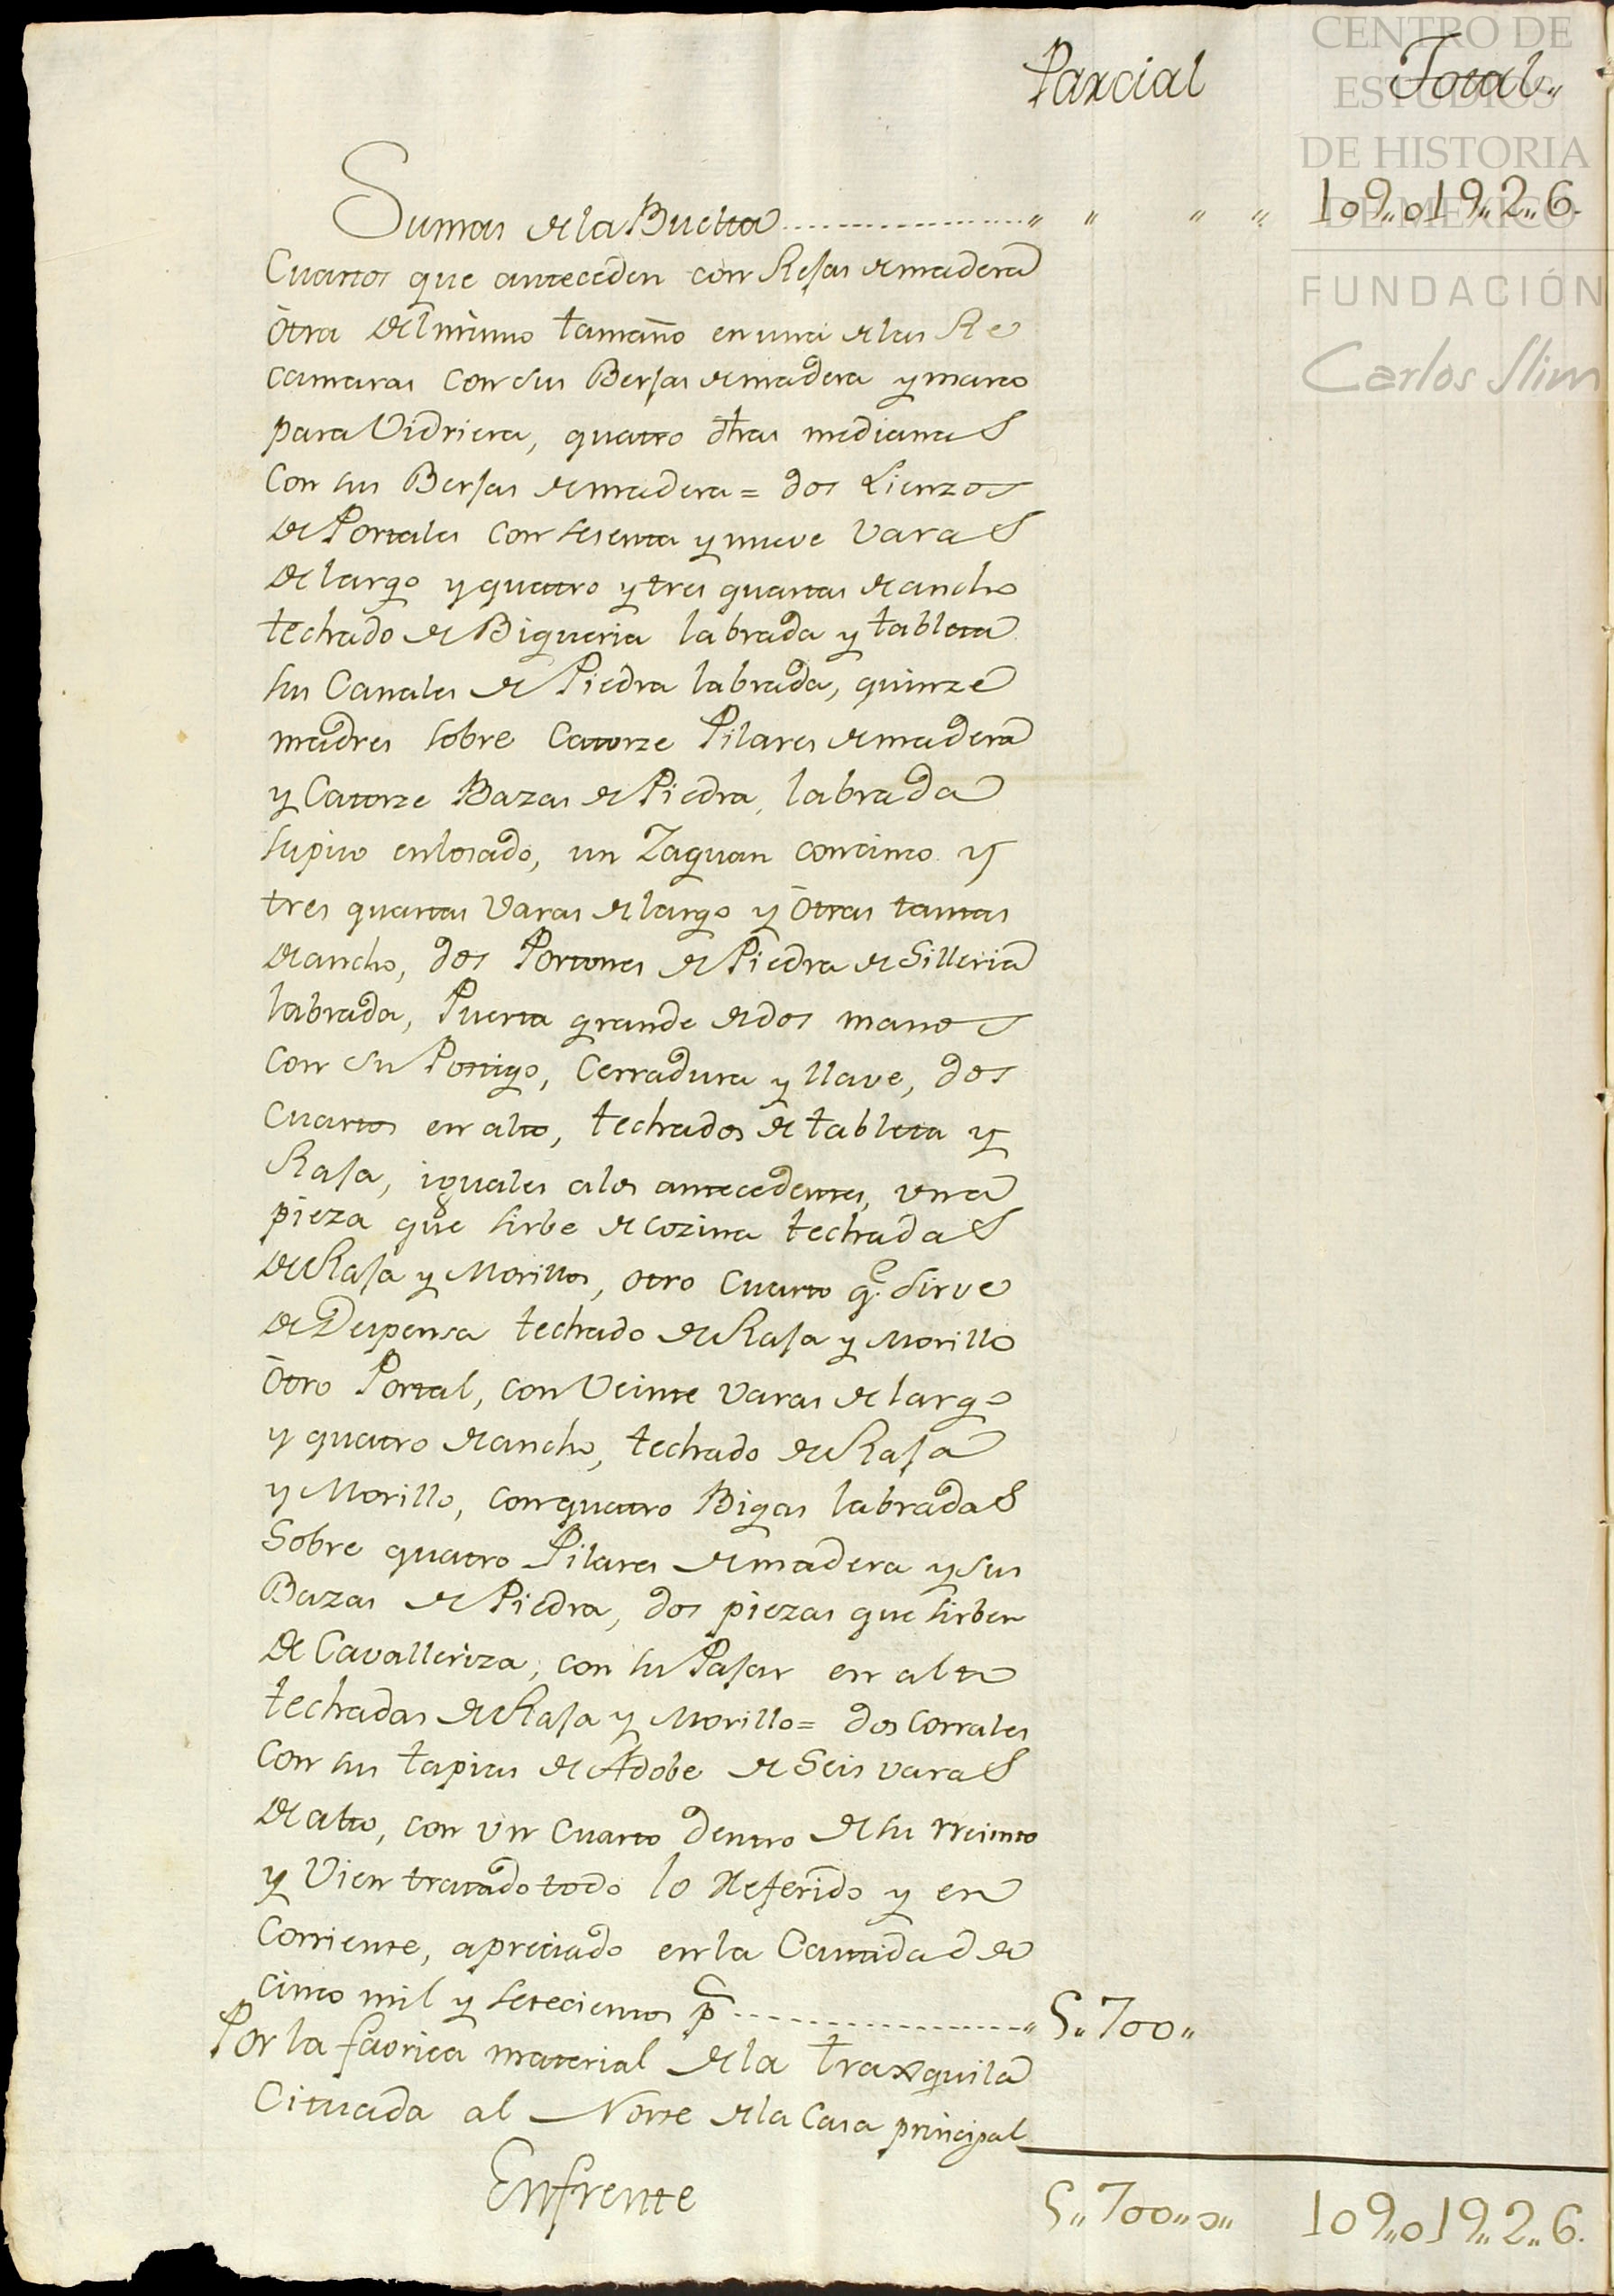 CENTRO DE
ESTUDIOS
DE HISTORIA
DE MEXICO
FUNDACIÓN
Carlos Slim
Parcial Total"
Sumas de la Buelta " " " " 109"019"2"6.
Cuartos que anteceden con Rejas de madera
otra del mismo tamaño en una de las Re
camaras con sus Berjas de madera y marco
para Vidriera, quatro otras medianas
con sus Berjas de madera = dos Lienzos
de Portales con sesenta y nueve varas
de largo y quatro y tres quartas de ancho
techado de Bigueria labrada y tableta
sus Canales de Piedra labrada, quinze
madres sobre Catorze Pilares de madera
y Catorze Bazas de Piedra, labrada
su piso enlosado, un Zaguan con cinco y
tres quartas varas de largo y otras tantas
de ancho, dos Portones de Piedra de Silleria
labrada, Puerta grande de dos manos
con su Postigo, Cerradura y llave, dos
Cuartos en alto, techados de tableta y
Raja, iguales a los antecedentes, una
pieza que sirbe de cozina techadas
de Raja y Morillos, otro Cuarto q.e sirve
de Despensa techado de Raja y Morillo
otro Portal, con Veinte varas de largo
y quatro de ancho, techado de Raja
y Morillo, con quatro Bigas labradas
Sobre quatro Pilares de madera y sus
Bazas de Piedra, dos piezas que sirben
de Cavalleriza, con su Pajar en alto
techadas de Raja y Morillo = dos Corrales
con sus tapias de Adobe de Seis varas
de alto, con un Cuarto dentro de su rrecinto
y Vien tratado todo lo Referido y en
Corriente, apreciado en la Cantidad de
cinco mil y setecientos p.s " 5"700"
Por la fabrica material de la traxquila
Cituada al Norte de la Casa principal
Enfrente 5"700"0" 109"019"2"6.